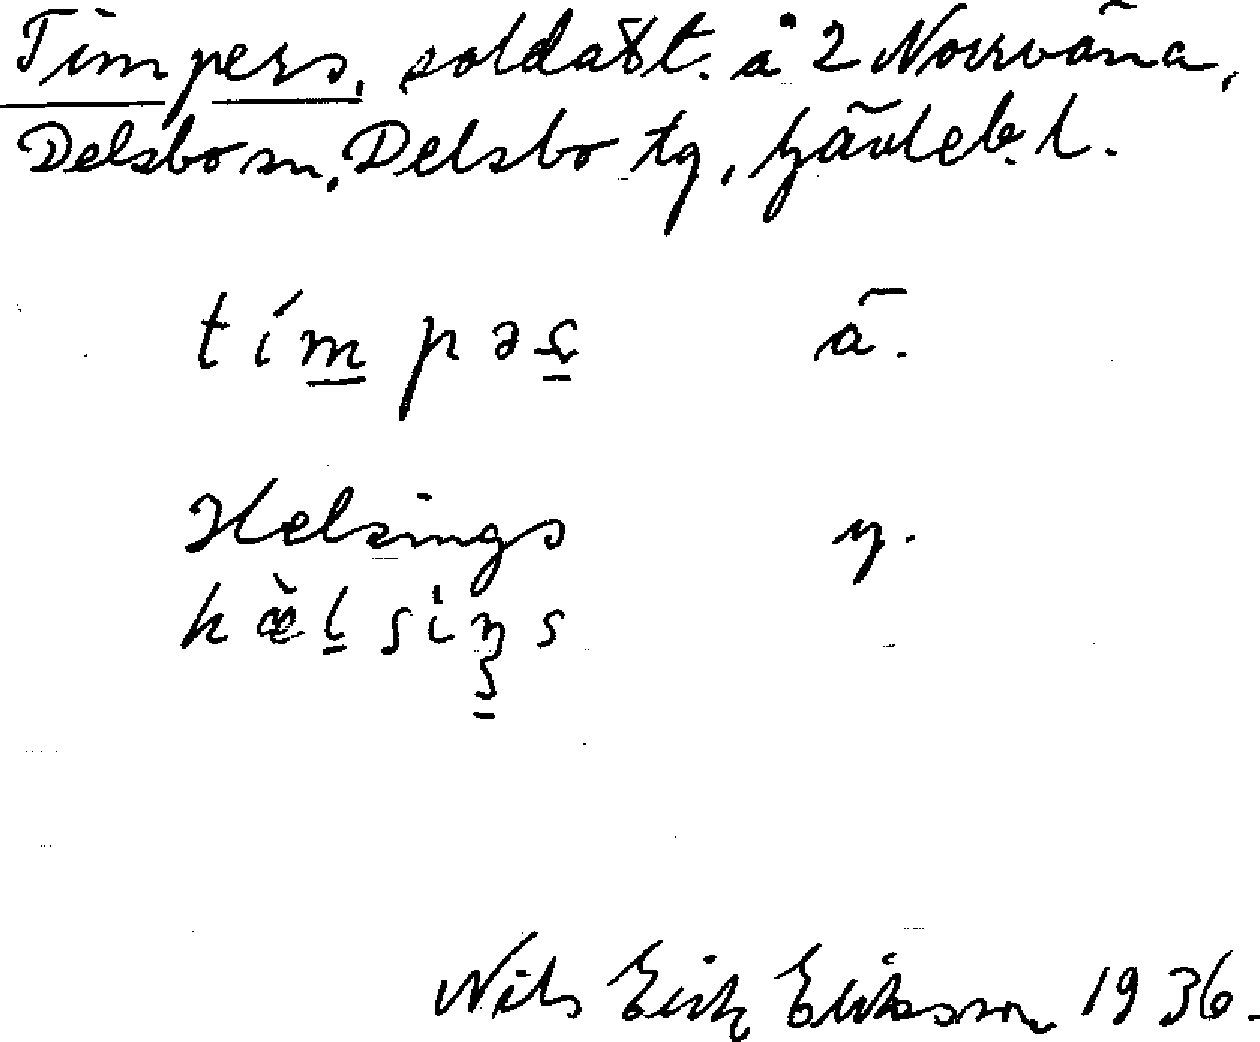 Timpers, soldatt. å 2 Norrväna,
Delsbo sn, Delsbo tg, Gävleb. l.
tímpəs ä.
Helsings y.
hæ̀lsiŋs
Nils Erik Eriksson 1936.